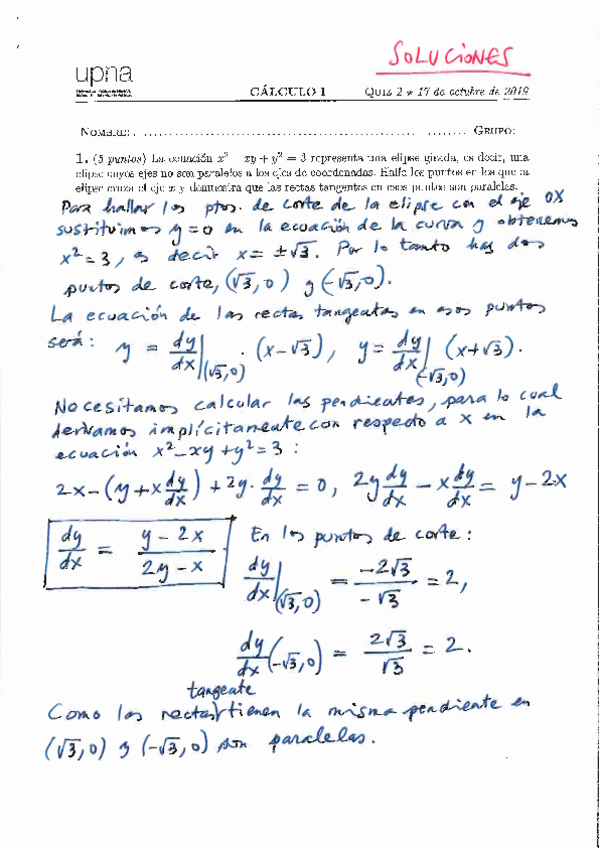 SOLUCIONES
upna
CÁLCULO I Quiz 2 * 17 de octubre de 2019
NOMBRE: GRUPO:
1. (5 puntos) La ecuación x² − xy + y² = 3 representa una elipse girada, es decir, una
elipse cuyos ejes no son paralelos a los ejes de coordenadas. Halle los puntos en los que la
elipse cruza el eje x y demuestra que las rectas tangentes en esos puntos son paralelas.
Para hallar los ptos. de corte de la elipse con el eje OX
sustituimos y=0 en la ecuación de la curva y obtenemos
x²=3, es decir x= ±√3. Por lo tanto hay dos
puntos de corte, (√3,0) y (-√3,0).
La ecuación de las rectas tangentes en esos puntos
será: y = dy/dx|(√3,0) · (x-√3), y = dy/dx|(-√3,0) (x+√3).
Necesitamos calcular las pendientes, para lo cual
derivamos implícitamente con respecto a x en la
ecuación x²-xy+y²=3:
2x-(y+x dy/dx)+2y· dy/dx = 0, 2y dy/dx - x dy/dx = y-2x
dy/dx = (y-2x)/(2y-x) En los puntos de corte:
dy/dx|(√3,0) = -2√3/-√3 = 2,
dy/dx(-√3,0) = 2√3/√3 = 2.
tangente
Como las rectas tienen la misma pendiente en
(√3,0) y (-√3,0) son paralelas.